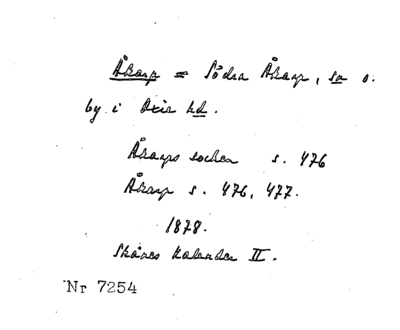 Åkarp = Södra Åkarp, sn o.
by i Oxie hd.
Åkarps socken s. 476
Åkarp s. 476, 477.
1878.
Skånes Kalender II.
Nr 7254